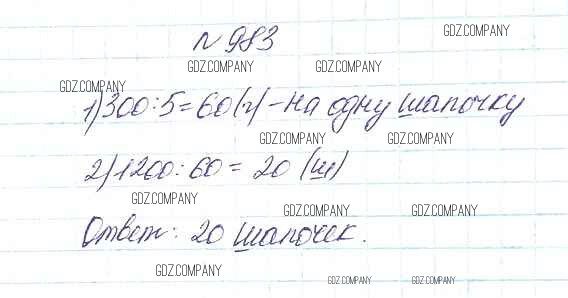 №983
GDZ.COMPANY
GDZ.COMPANY GDZ.COMPANY
GDZ.COMPANY
1) 300:5=60(г)-на одну шапочку
GDZ.COMPANY GDZ.COMPANY
2) 1200:60=20 (ш)
GDZ.COMPANY
GDZ.COMPANY GDZ.COMPANY
Ответ: 20 шапочек.
GDZ.COMPANY
GDZ.COMPANY GDZ.COMPANY